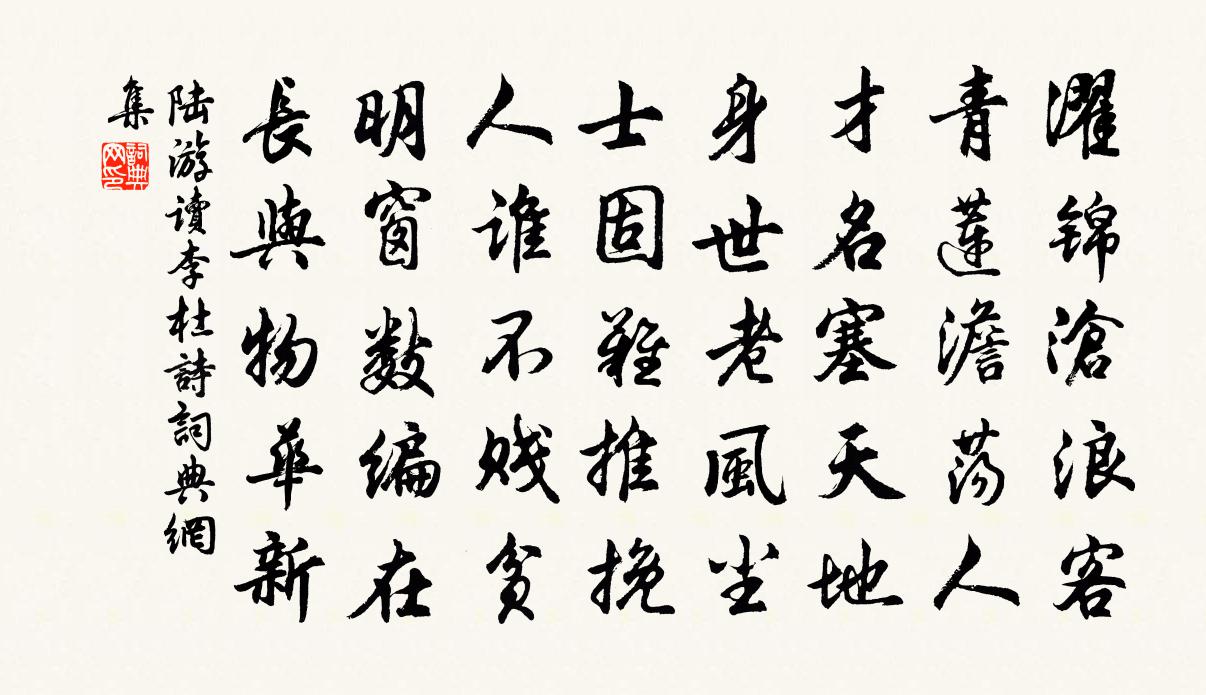 濯锦滄浪客
青蓮澹蕩人
才名塞天地
身世老風尘
士固難推挽
人谁不贱貧
明窗数编在
長與物華新
陸游讀李杜詩詞典網
集
詞典网印